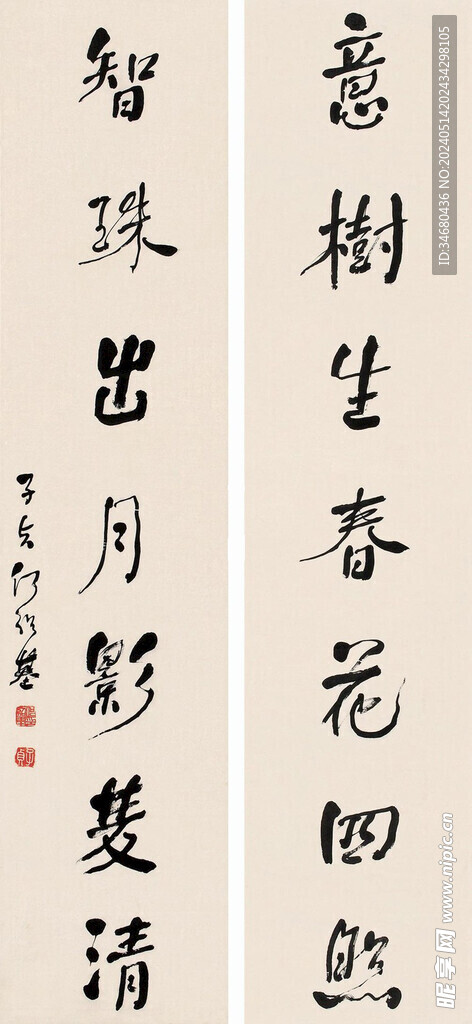 意樹生春花四照
智珠出月影雙清
子貞何紹基
子貞
ID:34680436 NO:20240514202434298105
昵享网 www.nipic.cn